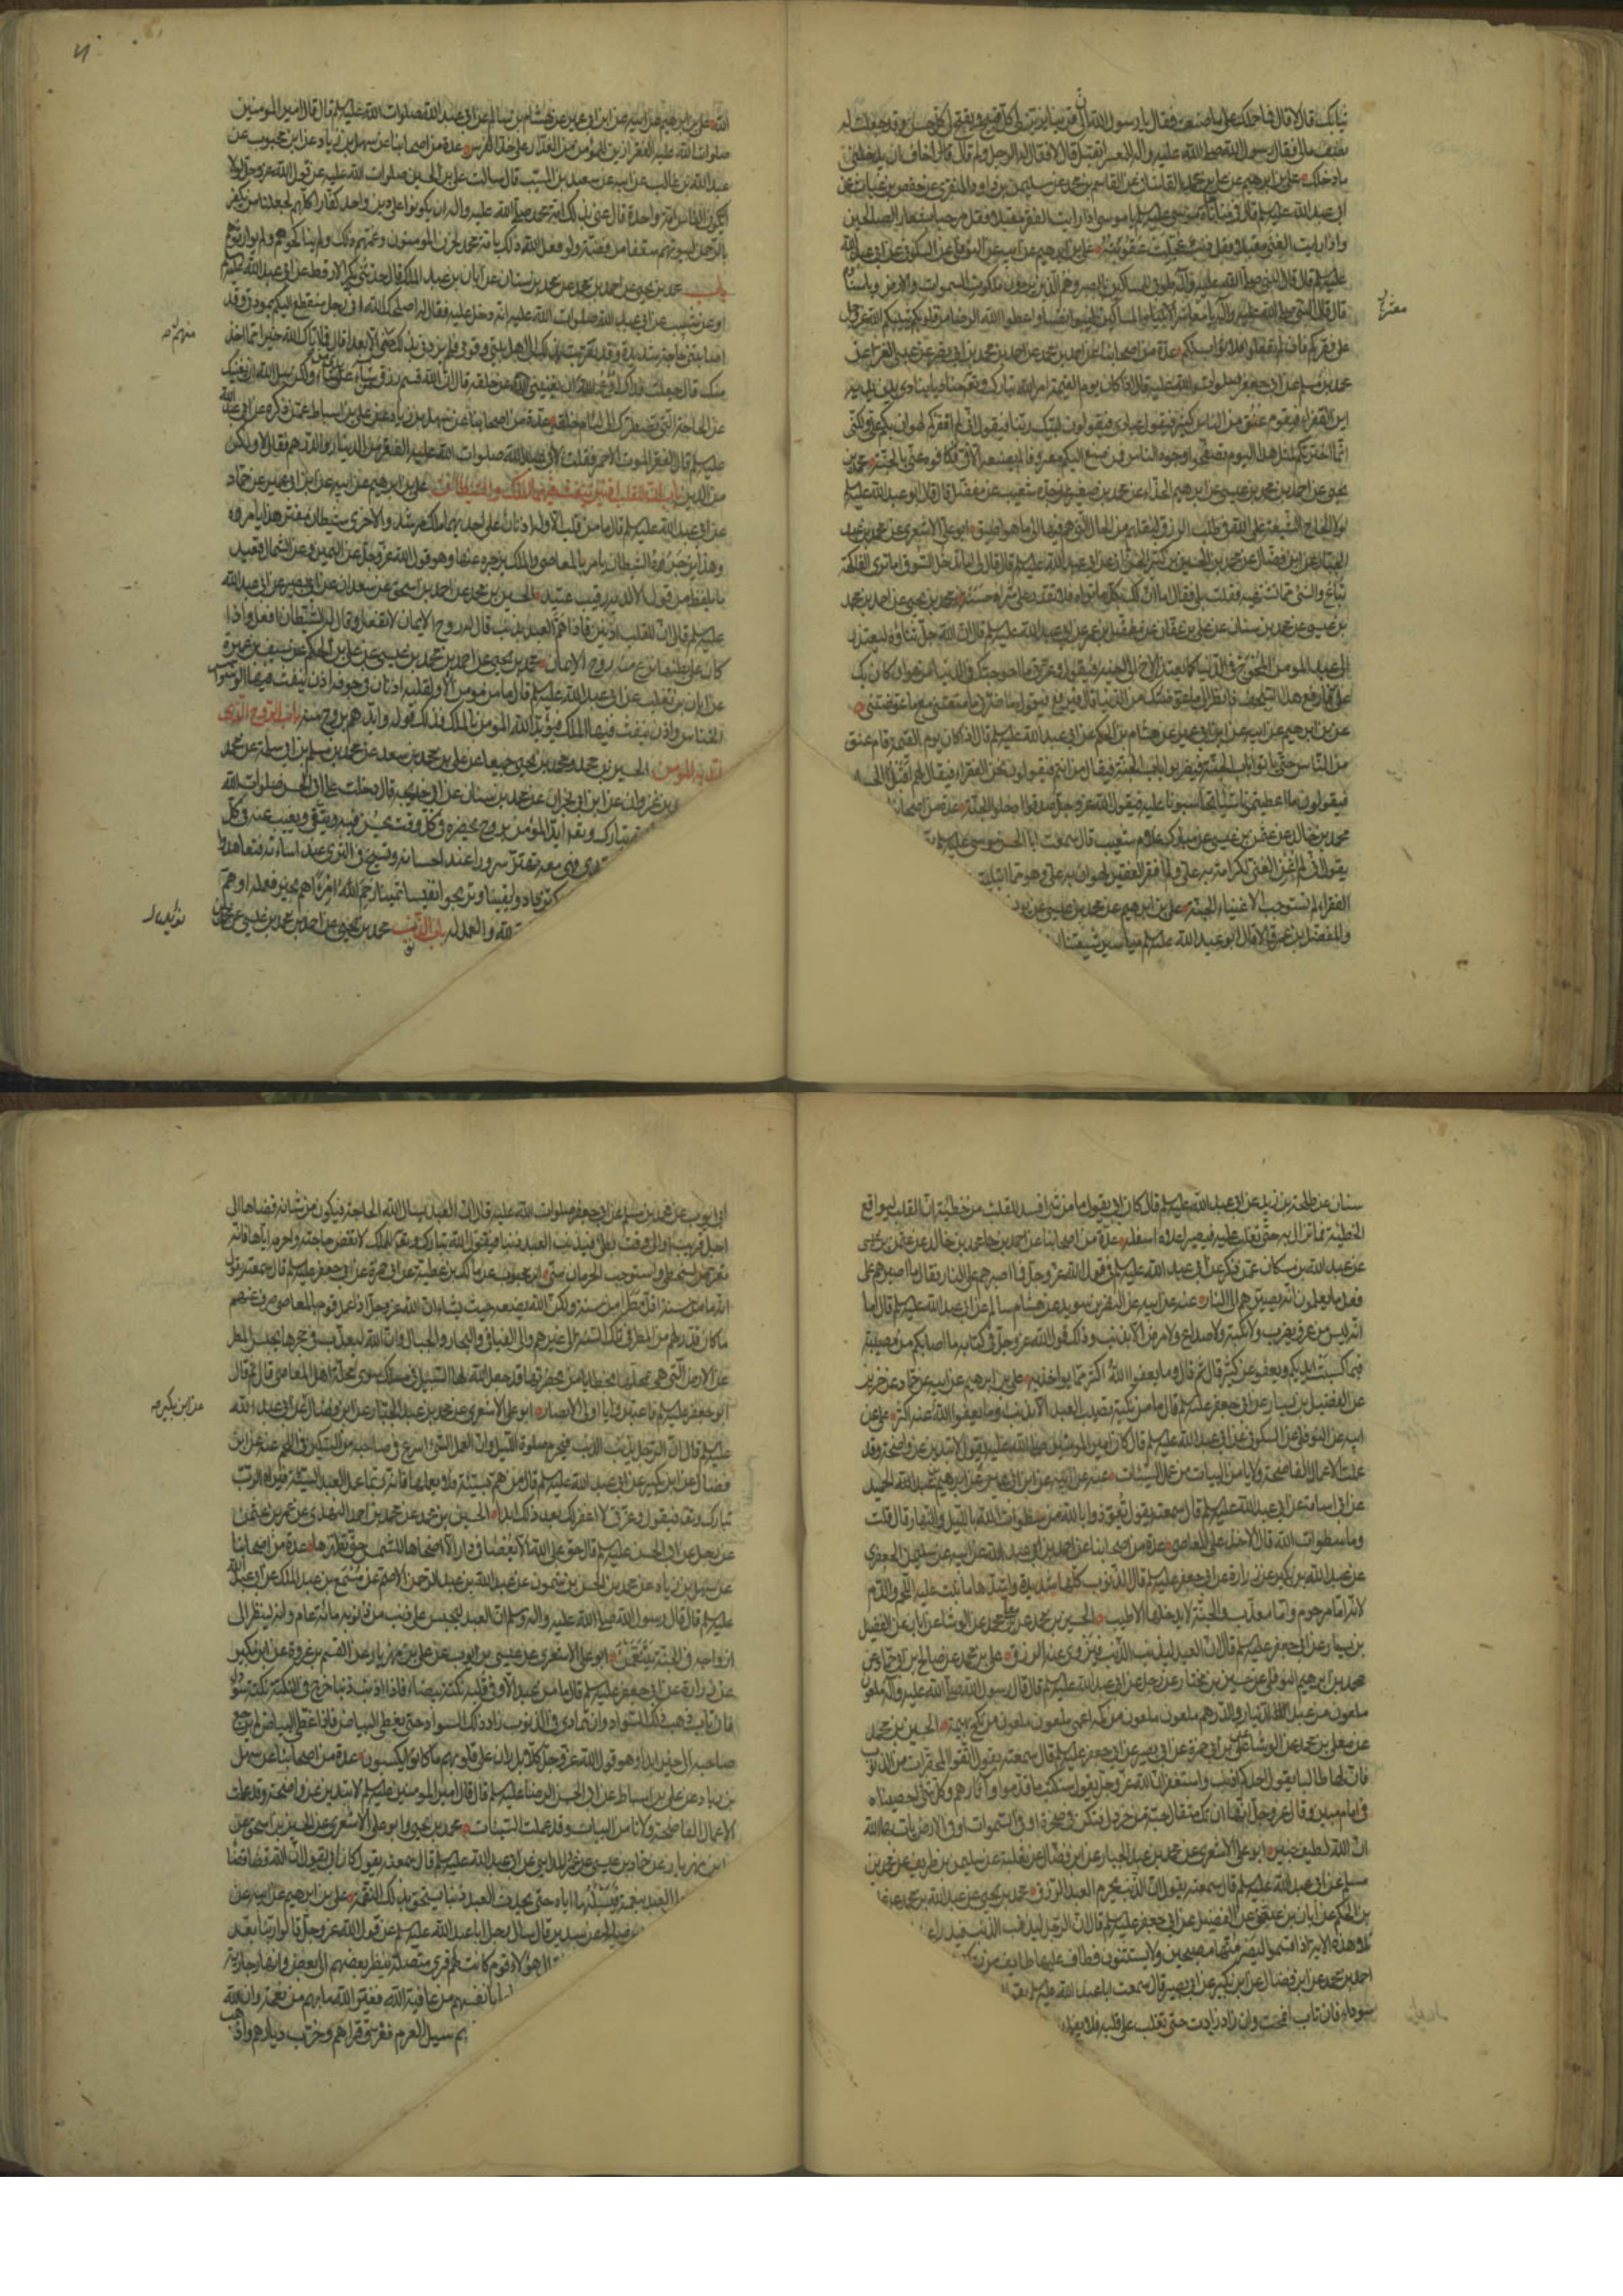 ثيابك قال لا قال فما حملك على ما صنعت فقال يا رسول الله ان لي قرينا يزين لي كل قبيح ويقبح لي كل حسن وقد جعلت له
نصف مالي فقال رسول الله صلى الله عليه واله للمعسر اتقبل قال لا فقال له الرجل ولم قال اخاف ان يدخلني
ما دخلك علي بن ابرهيم عن علي بن محمد القاساني عن القاسم بن محمد عن سليمن بن داود المنقري عن حفص بن غياث عن
ابي عبد الله عليه السلم قال في مناجاة موسى عليه السلم يا موسى اذا رايت الفقر مقبلا فقل مرحبا بشعار الصالحين
واذا رايت الغنى مقبلا فقل ذنب عجلت عقوبته علي بن ابرهيم عن ابيه عن النوفلي عن السكوني عن ابي عبد الله
عليه السلم قال قال النبي صلى الله عليه واله طوبى للمساكين بالصبر وهم الذين يرون ملكوت السموات والارض وباسناده
قال قال النبي صلى الله عليه واله يا معاشر المساكين طيبوا نفسا واعطوا الله الرضا من قلوبكم يثبكم الله عز وجل
على فقركم فان لم تفعلوا فلا ثواب لكم عدة من اصحابنا عن احمد بن محمد عن احمد بن محمد بن ابي نصر عن عيسى الفراء عن
محمد بن مسلم عن ابي جعفر صلوات الله عليه قال اذا كان يوم القيمة امر الله تبارك وتعالى مناديا ينادي بين يديه
اين الفقراء فيقوم عنق من الناس كثير فيقول عبادي فيقولون لبيك ربنا فيقول اني لم افقركم لهوان بكم علي ولكني
انما اخترتكم لمثل هذا اليوم تصفحوا وجوه الناس فمن صنع اليكم معروفا لم يصنعه الا في فكافوه عني بالجنة محمد بن
يحيى عن احمد بن محمد بن عيسى عن ابرهيم الحذاء عن محمد بن صغير عن جده شعيب عن مفضل قال قال ابو عبد الله عليه السلم
لولا الحاح الشيعة على الله في طلب الرزق لنقلهم من الحال التي هم فيها الى ما هو اضيق ابو علي الاشعري عن محمد بن عبد
الجبار عن ابن فضال عن محمد بن الحسين بن كثير الخزاز عن ابي عبد الله عليه السلم قال قال لي اما تدخل السوق اما ترى الفاكهة
تباع والشيء مما تشتهيه فقلت بلى فقال اما ان لك بكل ما تراه فلا تقدر على شراه حسنة محمد بن يحيى عن احمد بن محمد
بن عيسى عن محمد بن سنان عن علي بن عفان عن مفضل بن عمر عن ابي عبد الله عليه السلم قال ان الله جل ثناؤه ليعتذر
الى عبده المومن المحوج في الدنيا كما يعتذر الاخ الى اخيه فيقول وعزتي ما احوجتك في الدنيا من هوان كان بك
علي فارفع هذا السجف فانظر الى ما عوضتك من الدنيا قال فيرفع فيقول ما ضرني ما منعتني مع ما عوضتني
علي بن ابرهيم عن ابيه عن ابن ابي عمير عن هشام بن الحكم عن ابي عبد الله عليه السلم قال اذا كان يوم القيمة قام عنق
من الناس حتى ياتوا باب الجنة فيضربوا باب الجنة فيقال من انتم فيقولون نحن الفقراء فيقال لهم اقبل الحسا
فيقولون ما اعطيتمونا شيئا تحاسبونا عليه فيقول الله عز وجل صدقوا ادخلوا الجنة عدة من اصحابنا
محمد بن خالد عن عثمن بن عيسى عن مبارك غلام شعيب قال سمعت ابا الحسن موسى عليه السلم
يقول اني لم اغن الغني لكرامة به علي ولم افقر الفقير لهوان به علي وهو مما ابتليت
الفقراء لم تستوجب الاغنياء الجنة علي بن ابرهيم عن محمد بن عيسى عن يونس
والمفضل بن عمر قالا قال ابو عبد الله عليه السلم مياسير شيعتنا
الله علي بن ابرهيم عن ابيه عن ابن ابي عمير عن هشام بن سالم عن ابي عبد الله صلوات الله عليه قال قال امير المومنين
صلوات الله عليه الفقر ازين للمومن من العذار على خد الفرس عدة من اصحابنا عن سهل بن زياد عن ابن محبوب عن
عبد الله بن غالب عن ابيه عن سعيد بن المسيب قال سالت علي بن الحسين صلوات الله عليه عن قول الله عز وجل لولا
ان يكون الناس امة واحدة قال عنى بذلك امة محمد صلى الله عليه واله ان يكونوا على دين واحد كفارا كلهم لجعلنا لمن يكفر
بالرحمن لبيوتهم سقفا من فضة ولو فعل الله ذلك بامة محمد لحزن المومنون وغمهم ذلك ولم يناكحوهم ولم يوارثوهم
باب محمد بن يحيى عن احمد بن محمد عن محمد بن سنان عن ابان بن عبد الملك قال حدثني بكر الارقط عن ابي عبد الله عليه السلم
او عن شعيب عن ابي عبد الله صلوات الله عليه انه دخل عليه فقال له اصلحك الله اني رجل منقطع اليكم بمودتي وقد
اصابتني حاجة شديدة وقد تقربت بذلك الى اهل بيتي وقومي فلم يزدني بذلك منهم الا بعدا قال فما اتاك الله خير مما اخذ
منك قال جعلت فداك ادع الله ان يغنيني عن خلقه قال ان الله قسم رزق من شاء على يدي من شاء ولكن سل الله ان يغنيك
عن الحاجة التي تضطرك الى لئام خلقه عدة من اصحابنا عن سهل بن زياد عن علي بن اسباط عمن ذكره عن ابي عبد الله
عليه السلم قال الفقر الموت الاحمر فقلت لابي عبد الله صلوات الله عليه الفقر من الدينار والدرهم فقال لا ولكن
من الدين باب ان للقلب اذنين ينفث فيهما الملك والشيطان علي بن ابرهيم عن ابيه عن ابن ابي عمير عن حماد
عن ابي عبد الله عليه السلم قال ما من قلب الا وله اذنان على احديهما ملك مرشد وعلى الاخرى شيطان مفتن هذا يامره
وهذا يزجره الشيطان يامره بالمعاصي والملك يزجره عنها وهو قول الله عز وجل عن اليمين وعن الشمال قعيد
ما يلفظ من قول الا لديه رقيب عتيد الحسين بن محمد عن احمد بن اسحق عن سعدان عن ابي بصير عن ابي عبد الله
عليه السلم قال ان للقلب اذنين فاذا هم العبد بذنب قال له روح الايمان لا تفعل وقال له الشيطان افعل واذا
كان على بطنها نزع منه روح الايمان محمد بن يحيى عن احمد بن محمد بن عيسى عن علي بن الحكم عن سيف بن عميرة
عن ابان بن تغلب عن ابي عبد الله عليه السلم قال ما من مومن الا ولقلبه اذنان في جوفه اذن ينفث فيها الوسواس
الخناس واذن ينفث فيها الملك فيؤيد الله المومن بالملك فذلك قوله وايدهم بروح منه باب الروح الذي
ايد به المومن الحسين بن محمد ومحمد بن يحيى جميعا عن علي بن محمد بن سعد عن محمد بن مسلم بن ابي سلمة عن محمد
بن غزوان عن ابن ابي نجران عن محمد بن سنان عن ابي خديجة قال دخلت على ابي الحسن صلوات الله
تبارك وتعالى ايد المؤمن بروح يحضره في كل وقت يحسن فيه ويتقي ويغيب عنه في كل
فهي معه تهتز سرورا عند احسانه وتسيخ في الثرى عند اساءته فتعاهدوا
تزدادوا يقينا وتربحوا نفيسا ثمينا رحم الله امرءا هم بخير فعمله او هم
لله والعمل له باب الذنوب محمد بن يحيى عن احمد بن محمد بن عيسى عن محمد بن
سنان عن طلحة بن زيد عن ابي عبد الله عليه السلم قال كان ابي يقول ما من شيء افسد للقلب من خطيئة ان القلب ليواقع
الخطيئة فما تزال به حتى تغلب عليه فيصير اعلاه اسفله عدة من اصحابنا عن احمد بن محمد بن خالد عن عثمن بن عيسى
عن عبد الله بن مسكان عمن ذكره عن ابي عبد الله عليه السلم في قول الله عز وجل فما اصبرهم على النار فقال ما اصبرهم على
فعل ما يعلمون انه يصيرهم الى النار عنه عن ابيه عن النضر بن سويد عن هشام بن سالم عن ابي عبد الله عليه السلم قال اما
انه ليس من عرق يضرب ولا نكبة ولا صداع ولا مرض الا بذنب وذلك قول الله عز وجل في كتابه ما اصابكم من مصيبة
فبما كسبت ايديكم ويعفو عن كثير قال ثم قال وما يعفو الله اكثر مما يواخذ به علي بن ابرهيم عن ابيه عن حماد عن حريز
عن الفضيل بن يسار عن ابي جعفر عليه السلم قال ما من نكبة تصيب العبد الا بذنب وما يعفو الله عنه اكثر علي عن
ابيه عن النوفلي عن السكوني عن ابي عبد الله عليه السلم قال كان امير المومنين صلى الله عليه يقول لا تبدين عن واضحة وقد
عملت الاعمال الفاضحة ولا يامن البيات من عمل السيئات عنه عن ابيه عن ابن ابي عمير عن ابرهيم بن عبد الحميد
عن ابي اسامة عن ابي عبد الله عليه السلم قال سمعته يقول تعوذوا بالله من سطوات الله بالليل والنهار قال قلت
وما سطوات الله قال الاخذ على المعاصي عدة من اصحابنا عن احمد بن ابي عبد الله عن ابيه عن سليمن الجعفري
عن عبد الله بن بكير عن زرارة عن ابي جعفر عليه السلم قال الذنوب كلها شديدة واشدها ما نبت عليه اللحم والدم
لانه اما مرحوم واما معذب والجنة لا يدخلها الا طيب الحسين بن محمد عن معلى بن محمد عن الوشاء عن ابان عن الفضيل
بن يسار عن ابي جعفر عليه السلم قال ان العبد ليذنب الذنب فيزوى عنه الرزق علي بن محمد عن صالح بن ابي حماد عن
محمد بن ابرهيم النوفلي عن حسين بن مختار عن رجل عن ابي عبد الله عليه السلم قال قال رسول الله صلى الله عليه واله ملعون
ملعون من عبد الدينار والدرهم ملعون ملعون من كمه اعمى ملعون ملعون من نكح بهيمة الحسين بن محمد
عن معلى بن محمد عن الوشاء عن علي بن ابي حمزة عن ابي بصير عن ابي جعفر عليه السلم قال سمعته يقول اتقوا المحقرات من الذنوب
فان لها طالبا يقول احدكم اذنب واستغفر ان الله عز وجل يقول سنكتب ما قدموا واثارهم وكل شيء احصيناه
في امام مبين وقال عز وجل انها ان تك مثقال حبة من خردل فتكن في صخرة او في السموات او في الارض يات بها الله
ان الله لطيف خبير ابو علي الاشعري عن محمد بن عبد الجبار عن ابن فضال عن ثعلبة عن سليمن بن طريف عن محمد بن
مسلم عن ابي عبد الله عليه السلم قال سمعته يقول ان الذنب يحرم العبد الرزق محمد بن يحيى عن عبد الله بن محمد عن علي
بن الحكم عن ابان بن عثمن عن الفضيل عن ابي جعفر عليه السلم قال ان الرجل ليذنب الذنب فيدرا
وهذه الاية اذ اقسموا ليصرمنها مصبحين ولا يستثنون فطاف عليها طايف من ربك
احمد بن محمد عن ابن فضال عن ابن بكير عن ابي بصير قال سمعت ابا عبد الله عليه السلم يقول
سوداء فان تاب انمحت وان زاد زادت حتى تغلب على قلبه فلا يفلح
ابي ايوب عن محمد بن مسلم عن ابي جعفر صلوات الله عليه قال ان العبد يسال الله الحاجة فيكون من شانه قضاها الى
اجل قريب او الى وقت بطيء فيذنب العبد ذنبا فيقول الله تبارك وتعالى للملك لا تقض حاجته واحرمه اياها فانه
تعرض لسخطي واستوجب الحرمان مني ابن محبوب عن مالك بن عطية عن ابي حمزة عن ابي جعفر عليه السلم قال سمعته يقول
انه ما من سنة اقل مطرا من سنة ولكن الله يضعه حيث يشاء ان الله عز وجل اذا عمل قوم بالمعاصي صرف عنهم
ما كان قدر لهم من المطر في تلك السنة الى غيرهم والى الفيافي والبحار والجبال وان الله ليعذب الجعل في جحرها بحبس المطر
عن الارض التي هي بمحلها بخطايا من بحضرتها وقد جعل الله لها السبيل في مسلك سوى محلة اهل المعاصي قال ثم قال
ابو جعفر عليه السلم فاعتبروا يا اولي الابصار ابو علي الاشعري عن محمد بن عبد الجبار عن ابن فضال عن ابي عبد الله
عليه السلم قال ان الرجل يذنب الذنب فيحرم صلوة الليل وان العمل السيئ اسرع في صاحبه من السكين في اللحم عنه عن ابن
فضال عن ابن بكير عن ابي عبد الله عليه السلم قال من هم بسيئة فلا يعملها فانه ربما عمل العبد السيئة فيراه الرب
تبارك وتعالى فيقول وعزتي لا اغفر لك بعد ذلك ابدا الحسين بن محمد عن محمد بن احمد النهدي عن عمرو بن عثمن
عن رجل عن ابي الحسن عليه السلم قال حق على الله ان لا يعصى في دار الا اضحاها للشمس حتى تطهرها عدة من اصحابنا
عن سهل بن زياد عن محمد بن الحسن بن شمون عن عبد الله بن عبد الرحمن الاصم عن مسمع بن عبد الملك عن ابي عبد الله
عليه السلم قال قال رسول الله صلى الله عليه واله وسلم ان العبد ليحبس على ذنب من ذنوبه مائة عام وانه لينظر الى
ازواجه في الجنة يتنعمن ابو علي الاشعري عن عيسى بن ايوب عن علي بن مهزيار عن القسم بن عروة عن ابن بكير
عن زرارة عن ابي جعفر عليه السلم قال ما من عبد الا وفي قلبه نكتة بيضاء فاذا اذنب ذنبا خرج في النكتة نكتة سوداء
فان تاب ذهب ذلك السواد وان تمادى في الذنوب زاد ذلك السواد حتى يغطي البياض فاذا غطى البياض لم يرجع
صاحبه الى خير ابدا وهو قول الله عز وجل كلا بل ران على قلوبهم ما كانوا يكسبون عدة من اصحابنا عن سهل
بن زياد عن علي بن اسباط عن ابي الحسن الرضا عليه السلم قال قال امير المومنين عليه السلم لا تبدين عن واضحة وقد عملت
الاعمال الفاضحة ولا تامن البيات وقد عملت السيئات محمد بن يحيى وابو علي الاشعري عن الحسين بن اسحق عن
ابن مهزيار عن حماد بن عيسى عن ابي عمرو المدايني عن ابي عبد الله عليه السلم قال سمعته يقول كان ابي يقول ان الله قضا قضاء
العبد بنعمة فيسلبها اياه حتى يحدث العبد ذنبا يستحق بذلك النقمة علي بن ابرهيم عن ابيه عن
عن سدير قال سال رجل ابا عبد الله عليه السلم عن قول الله عز وجل قالوا ربنا بعد
قال هؤلاء قوم كانت لهم قرى متصلة ينظر بعضهم الى بعض وانهار جارية
ما بانفسهم من عافية الله فغير الله ما بهم من نعمة وان الله
هم سيل العرم فغرق قراهم وخرب ديارهم واذهب